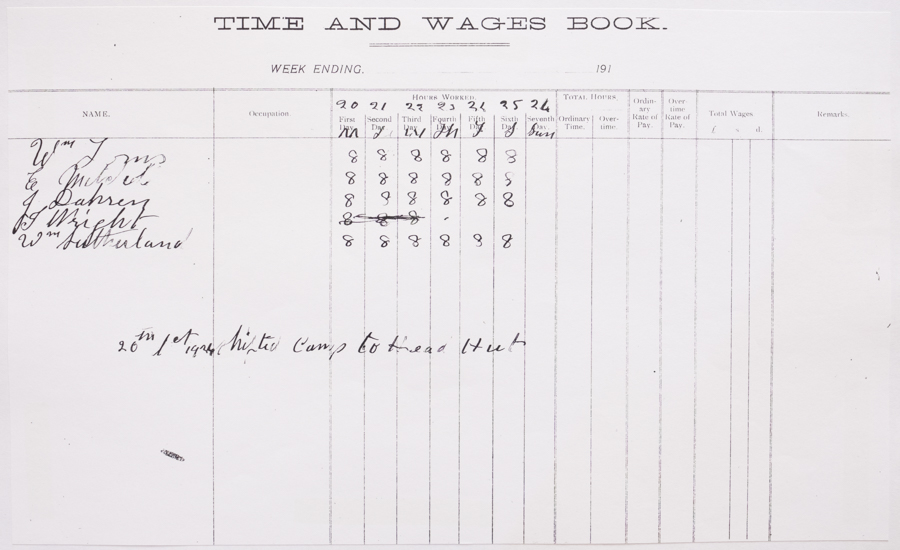 TIME AND WAGES BOOK.
WEEK ENDING, 191
NAME. Occupation. HOURS WORKED. TOTAL HOURS. Ordin-ary Rate of Pay. Over-time Rate of Pay. Total Wages Remarks.
20 21 22 23 24 25 26
First Day. Second Day. Third Day. Fourth Day. Fifth Day. Sixth Day. Seventh Day. Ordinary Time. Over-time. £ s. d.
M T W Th F S Sun
Wm 8 8 8 8 8 8
E 8 8 8 8 8 8
J 8 8 8 8 8 8
Wright 8 8 8
Wm Sutherland 8 8 8 8 8 8
20th 1924 Shifted Camp to Head Hut